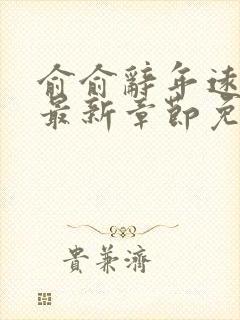 俞俞辭年速
最新章節免
貴兼濟